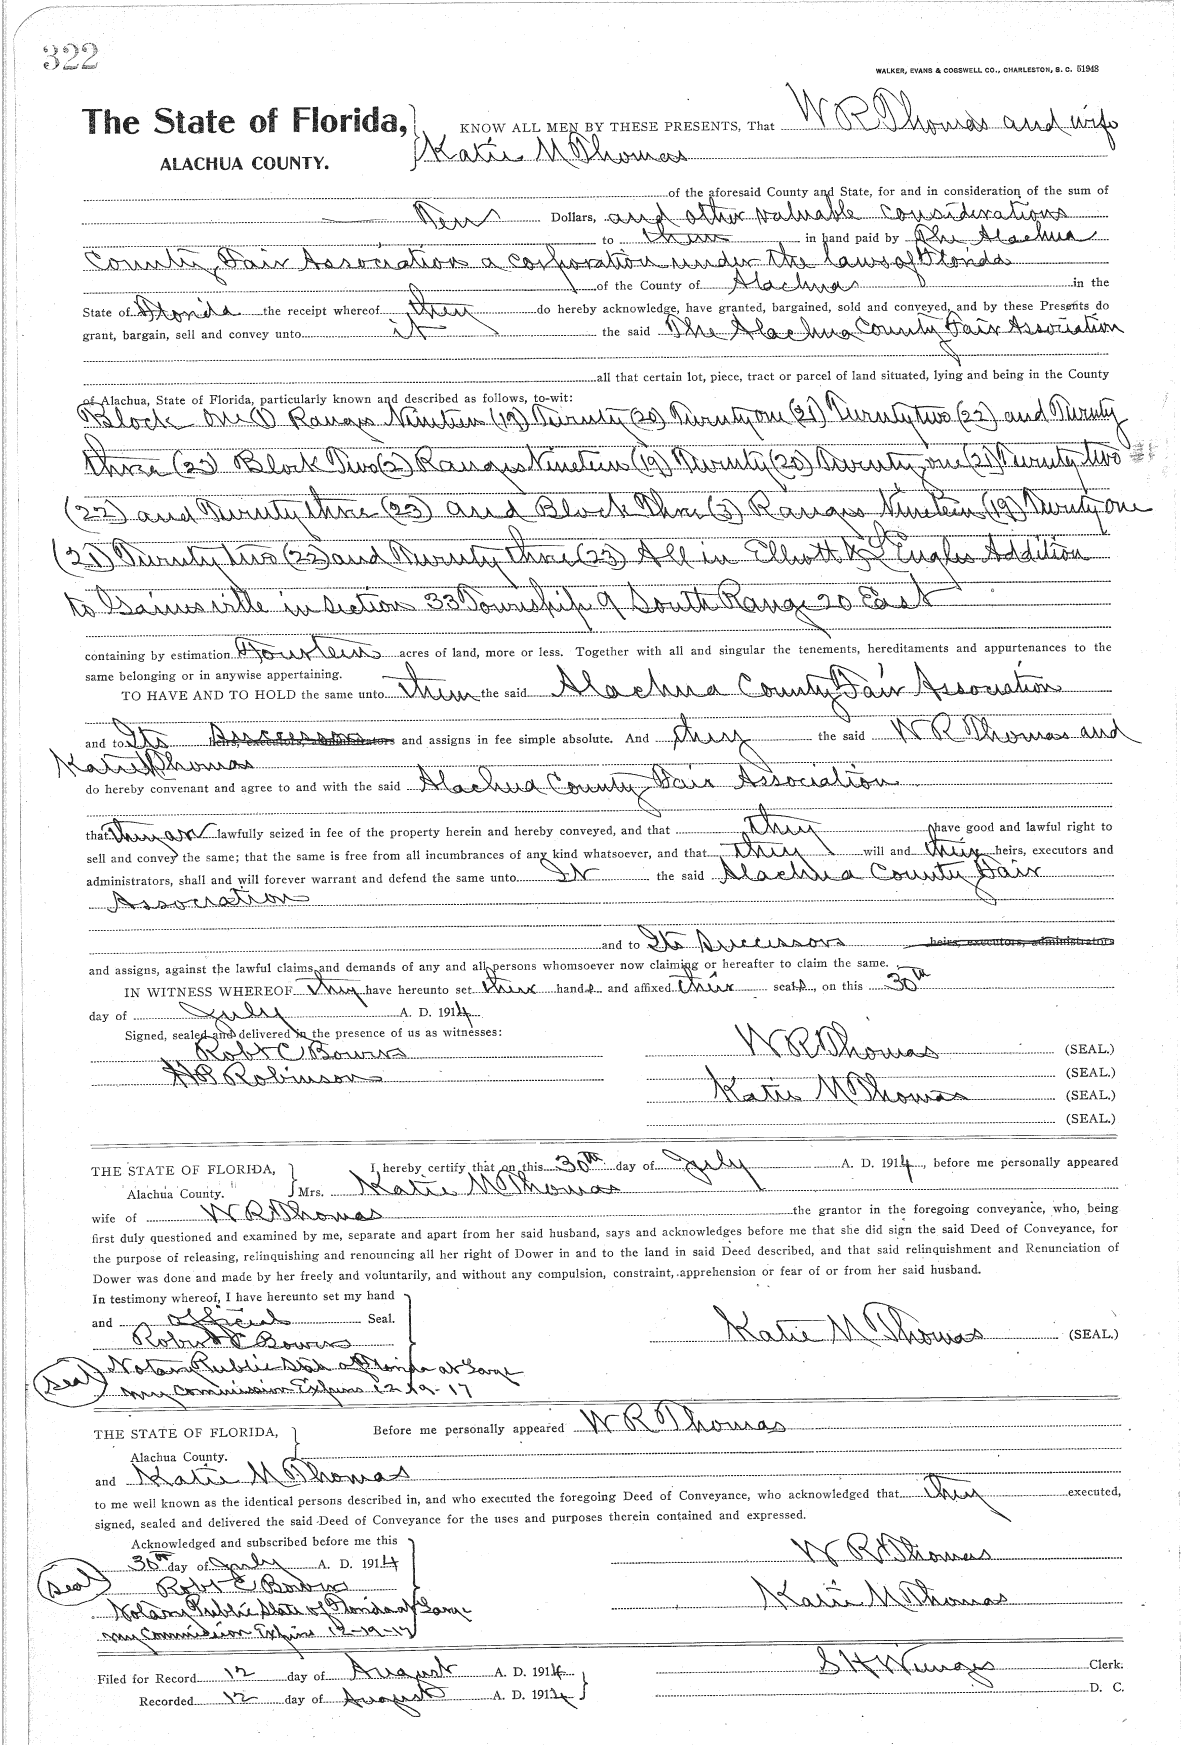 322
WALKER, EVANS & COGSWELL CO., CHARLESTON, S. C. 51948
The State of Florida, KNOW ALL MEN BY THESE PRESENTS, That W R Thomas and wife
ALACHUA COUNTY. Katie M Thomas
of the aforesaid County and State, for and in consideration of the sum of
Ten Dollars, and other valuable considerations
to them in hand paid by The Alachua
County Fair Association a corporation under the laws of Florida
of the County of Alachua in the
State of Florida the receipt whereof they do hereby acknowledge, have granted, bargained, sold and conveyed, and by these Presents do
grant, bargain, sell and convey unto it the said The Alachua County Fair Association
all that certain lot, piece, tract or parcel of land situated, lying and being in the County
of Alachua, State of Florida, particularly known and described as follows, to-wit:
Block One (1) Ranges Nineteen (19) Twenty (20) Twenty one (21) Twenty two (22) and Twenty
three (23) Block Two (2) Ranges Nineteen (19) Twenty (20) Twenty one (21) Twenty two
(22) and Twenty three (23) and Block Three (3) Ranges Nineteen (19) Twenty one
(21) Twenty two (22) and Twenty three (23) All in Elliott Addition
to Gainesville in section 33 Township 9 South Range 20 East
containing by estimation Fourteen acres of land, more or less. Together with all and singular the tenements, hereditaments and appurtenances to the
same belonging or in anywise appertaining.
TO HAVE AND TO HOLD the same unto them the said Alachua County Fair Association
and to Its Successors heirs, executors, administrators and assigns in fee simple absolute. And they the said W R Thomas and
Katie M Thomas
do hereby convenant and agree to and with the said Alachua County Fair Association
that they are lawfully seized in fee of the property herein and hereby conveyed, and that they have good and lawful right to
sell and convey the same; that the same is free from all incumbrances of any kind whatsoever, and that they will and their heirs, executors and
administrators, shall and will forever warrant and defend the same unto It the said Alachua County Fair
Association
and to Its Successors heirs, executors, administrators
and assigns, against the lawful claims and demands of any and all persons whomsoever now claiming or hereafter to claim the same.
IN WITNESS WHEREOF they have hereunto set their hands and affixed their seals, on this 30th
day of July A. D. 1914
Signed, sealed and delivered in the presence of us as witnesses:
Robt C Bowers W R Thomas (SEAL.)
H P Robinson (SEAL.)
Katie M Thomas (SEAL.)
(SEAL.)
THE STATE OF FLORIDA, I hereby certify that on this 30th day of July A. D. 1914, before me personally appeared
Alachua County. Mrs. Katie M Thomas
wife of W R Thomas the grantor in the foregoing conveyance, who, being
first duly questioned and examined by me, separate and apart from her said husband, says and acknowledges before me that she did sign the said Deed of Conveyance, for
the purpose of releasing, relinquishing and renouncing all her right of Dower in and to the land in said Deed described, and that said relinquishment and Renunciation of
Dower was done and made by her freely and voluntarily, and without any compulsion, constraint, apprehension or fear of or from her said husband.
In testimony whereof, I have hereunto set my hand
and official Seal.
Robert C Bowers Katie M Thomas (SEAL.)
Seal Notary Public State of Florida at Large
my Commission Expires 12-19-17
THE STATE OF FLORIDA, Before me personally appeared W R Thomas
Alachua County.
and Katie M Thomas
to me well known as the identical persons described in, and who executed the foregoing Deed of Conveyance, who acknowledged that they executed,
signed, sealed and delivered the said Deed of Conveyance for the uses and purposes therein contained and expressed.
Acknowledged and subscribed before me this
30th day of July A. D. 1914 W R Thomas
Seal Robt C Bowers Katie M Thomas
Notary Public State of Florida at Large
my Commission Expires 12-19-17
Filed for Record 12 day of August A. D. 1914 S H Wienges Clerk.
Recorded 12 day of August A. D. 1914 D. C.